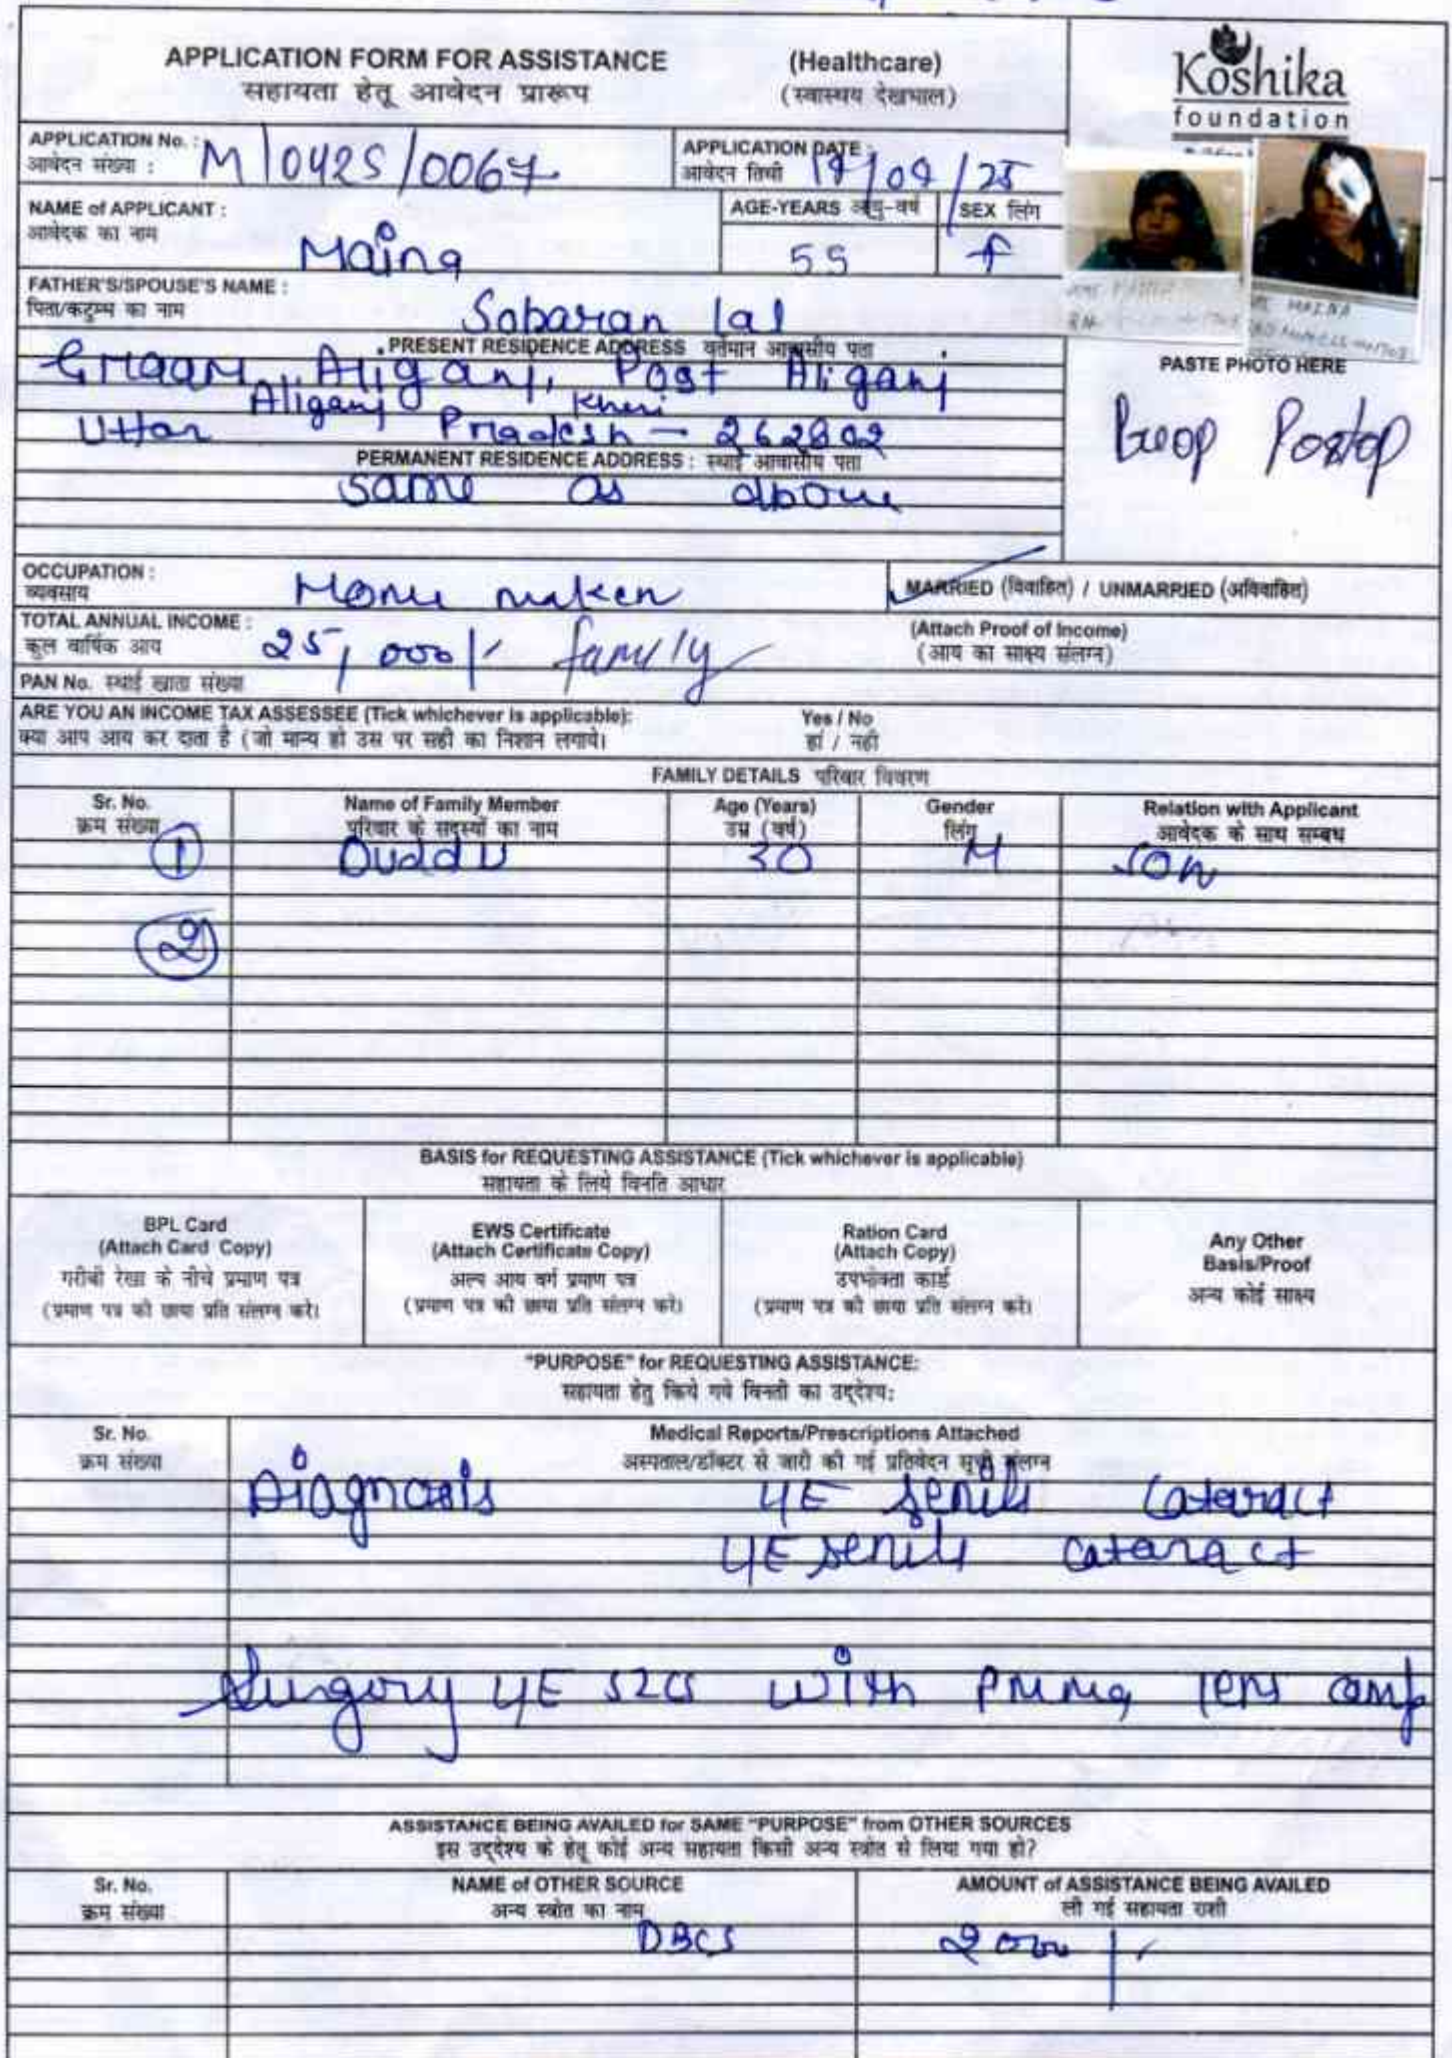 APPLICATION FORM FOR ASSISTANCE (Healthcare)
सहायता हेतू आवेदन प्रारूप (स्वास्थय देखभाल)
Koshika
foundation
APPLICATION No. :
आवेदन संख्या : M/0425/0067
APPLICATION DATE :
आवेदन तिथी /25
NAME of APPLICANT :
आवेदक का नाम Maina
AGE-YEARS आयु-वर्ष 55
SEX लिंग f
FATHER'S/SPOUSE'S NAME :
पिता/कटुम्ब का नाम Sobaran lal
MAINA
PRESENT RESIDENCE ADDRESS वर्तमान आवासीय पता
Graam Aliganj, Post Aliganj
Aliganj Kheri
Uttar Pradesh - 262802
PASTE PHOTO HERE
Preop Postop
PERMANENT RESIDENCE ADDRESS : स्थाई आवासीय पता
same as above
OCCUPATION :
व्यवसाय Home maker
MARRIED (विवाहित) / UNMARRIED (अविवाहित)
TOTAL ANNUAL INCOME :
कुल वार्षिक आय 25,000/- family
(Attach Proof of Income)
(आय का साक्ष्य संलग्न)
PAN No. स्थाई खाता संख्या
ARE YOU AN INCOME TAX ASSESSEE (Tick whichever is applicable): Yes / No
क्या आप आय कर दाता है (जो मान्य हो उस पर सही का निशान लगाये। हां / नही
FAMILY DETAILS परिवार विवरण
Sr. No. Name of Family Member Age (Years) Gender Relation with Applicant
क्रम संख्या परिवार के सदस्यों का नाम उम्र (वर्ष) लिंग आवेदक के साथ सम्बध
1 30 M son
2
BASIS for REQUESTING ASSISTANCE (Tick whichever is applicable)
सहायता के लिये विनति आधार
BPL Card
(Attach Card Copy)
गरीबी रेखा के नीचे प्रमाण पत्र
(प्रमाण पत्र की छाया प्रति संलग्न करे।
EWS Certificate
(Attach Certificate Copy)
अल्प आय वर्ग प्रमाण पत्र
(प्रमाण पत्र की छाया प्रति संलग्न करे।
Ration Card
(Attach Copy)
उपभोक्ता कार्ड
(प्रमाण पत्र की छाया प्रति संलग्न करे।
Any Other
Basis/Proof
अन्य कोई साक्ष्य
"PURPOSE" for REQUESTING ASSISTANCE:
सहायता हेतु किये गये विनती का उद्देश्य:
Sr. No. Medical Reports/Prescriptions Attached
क्रम संख्या अस्पताल/डॉक्टर से जारी की गई प्रतिवेदन सूची संलग्न
Diagnosis senile cataract
senile cataract
Surgery SICS with PMMA lens
ASSISTANCE BEING AVAILED for SAME "PURPOSE" from OTHER SOURCES
इस उद्देश्य के हेतू कोई अन्य सहायता किसी अन्य स्त्रोत से लिया गया हो?
Sr. No. NAME of OTHER SOURCE AMOUNT of ASSISTANCE BEING AVAILED
क्रम संख्या अन्य स्त्रोत का नाम ली गई सहायता राशी
DBCS 2000/-